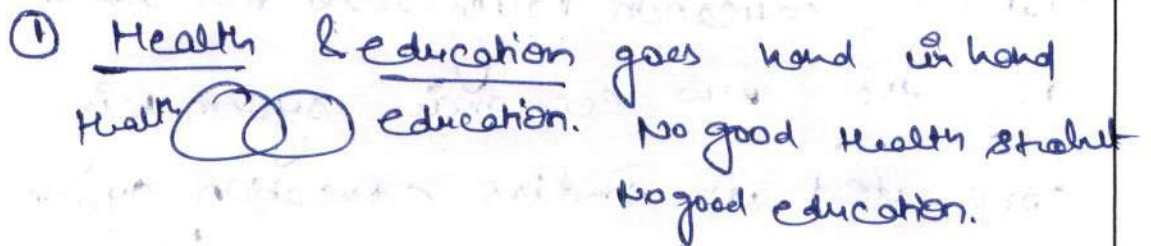 ① Health & education goes hand in hand
Health education. No good Health
No good education.